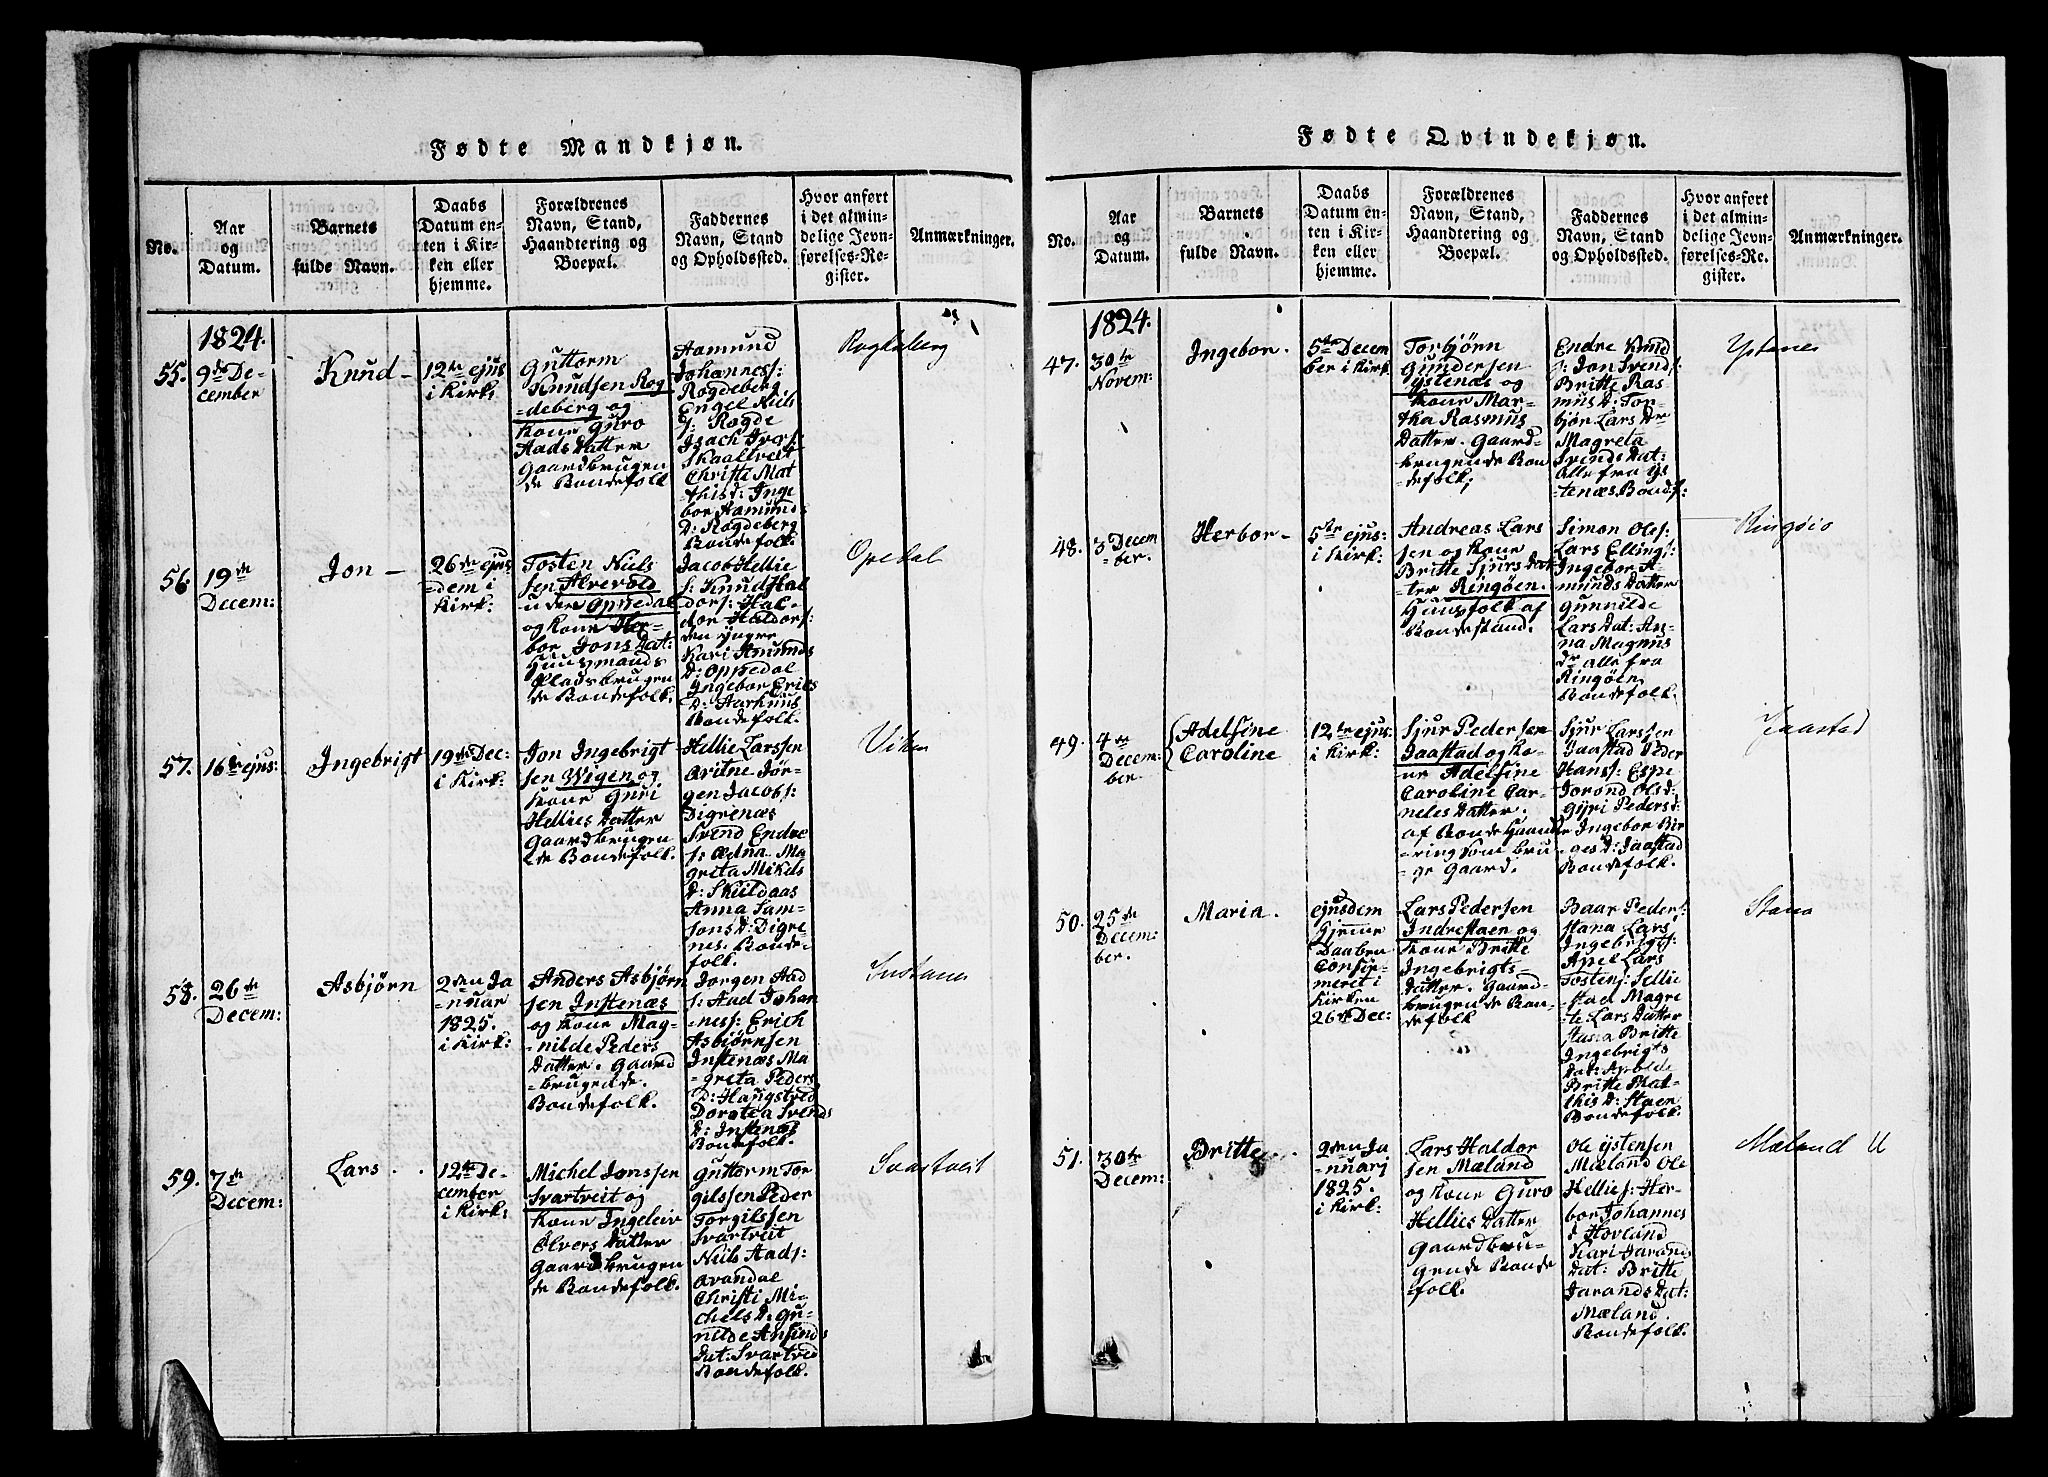 Fødte Mandkjøn.
No.
Aar
og
Datum.
Barnets
fulde Navn.
Daabs
Datum en-
ten i Kir-
ken eller
hjemme.
Forældrenes
Navn, Stand,
Haandtering og
Boepæl.
Faddernes
Navn, Stand
og Opholdssted.
Hvor anført
i det almin-
delige Jevn-
førelses-Re-
gister.
Anmærkninger.
1824.
55.
9de De-
cember
Knud -
12te ejus
i Kirk:
Guttorm
Knudsen Rog
=deberg og
Kone Guro
Aads Datter
Gaardbrugen
de Bondefolk
Aamund
Johanness:
Rogdeberg
Engel Niels
s: Rogde
Isach Ivers:
Skaaltveit
Christe Mat
=this d: Inge
bor Aamunds
D: Rogdeberg
Bondefolk.
56.
19de
Decem:
Jon -
26de ejus
=dem i
Kirk:
Tosten Niels
sen Alrevold
under Oppedal
og Kone Her-
bor Jons Dat:
Huusmands
Pladsbrugen
de Bondefolk.
Jacob Hellie
s: Knud Hal
dors: Hal-
dor Haldors:
den yngre
Kari Amunds
D: Oppedal
Ingebor Erichs
D: Aarhuus
Bondefolk.
Opedal
57.
16de ejus:
Ingebrigt
19de Dec:
i Kirk:
Jon Ingebrigt
sen Wigen og
Kone Guri
Hellies Datter
Gaardbrugen
de Bondefolk.
Hellie Larssen
Qvitne Jør-
gen Jacobs:
Digrenæs
Svend Endre
s: Ædna Ma
greta Mikels
D: Skieldaas
Anna Sam-
sons D: Digre-
nes. Bonde-
folk.
Viken
58.
26de
Decem:
Asbjørn
2den Ja
=nuar
1825.
i Kirk:
Anders Asbjørn
sen Instenæs
og Kone Mag-
=nilde Peders
Datter. Gaard
=brugende.
Bondefolk.
Jorgen Aad
s: Aad Johan
=ness: Erich
Asbjørnsen
Instenæs Ma
=greta Peders
D: Haugstved
Dorotea Svends
D: Instenæs
Bondefolk.
59.
7de
Decem:
Lars
12te De-
cember
i Kirk:
Michel Jonssen
Svartveit og
Kone Ingeleiv
Elvers Datter
Gaardbrugen
de Bondefolk.
Guttorm Tor
gilssen Peder
Torgilssen
Svartveit
Niels Aads:
Qvandal
Christi Mi-
chels D: Gu-
nilde Amunds
Dat: Svartved
Bondefolk.
Svartveit
Fødte Qvindekjøn.
No.
Aar
og
Datum.
Barnets
fulde Navn.
Daabs
Datum en-
ten i Kir-
ken eller
hjemme.
Forældrenes
Navn, Stand,
Haandtering og
Boepæl.
Faddernes
Navn, Stand
og Opholdssted.
Hvor anført
i det almin-
delige Jevn-
førelses-Re-
gister.
Anmærkninger.
1824.
47.
30te
Novem:
Ingebor.
5te Decem
ber i Kirk
Torbjørn
Gundersen
Ystenæs og
Kone Mar-
tha Rasmus
Datter. Gaard-
brugende Bon
defolk;
Endre Knud
s: Jon Svends:
Britte Ras
mus D: Tor-
bjør Lars Dr
Magreta
Svends Dat:
Alle fra Ys-
tenæs Bondf:
Ystenes
48.
3 Decem
=ber.
Herbor -
5te ejus:
i Kirk:
Andreas Lars
sen og Kone
Britte Sjurs Dat
ter Ringøen.
Huusfolk af
Bondestand.
Simon Oles:
Lars Ellings:
Ingebor A-
munds Datter
Gunnilde
Lars Dat: An-
na Magnus
Dr alle fra
Ringøen
Bondefolk.
Ringøio
49.
4de
Decem=
ber.
Adelsine
Caroline
12te ejus:
i Kirk:
Sjur Pedersen
Jaastad og Ko-
ne Adelsine
Caroline Cor-
neles Datter.
af Bonde Haandte
=ring som bru
ge Gaard.
Sjur Larssen
Jaastad Peder
Hanss: Espe
Jorond Ols d:
Gyri Peders d:
Ingebor Bir
ges D: Jaastad
Bondefolk.
Jaastad
50.
25de
Decem:
ber.
Maria.
ejusdem
Hjemme
Daaben
Confir-
meret i
Kirken
26de Dec:
Lars Pedersen
Indrestaen og
Kone Britte
Ingebrigts-
Datter. Gaard-
brugende Bon-
defolk
Baar Peders:
Stana Lars
Ingebrigts:
Apel Lars
Tostens: Sellie
stad Magre
te Lars Datter
Stana Britte
Ingebrigts
Dat: Apolde
Britte Mat-
this D: Staen
Bondefolk.
Stana
51.
30te
Decem:
Britte
2den Ja
=nuarj
1825.
i Kirk:
Lars Haldor
sen Mæland
og Kone Guro
Hellies Datter
Gaardbru-
gende Bonde
folk.
Ole Ystensen
Mæland Ole
Hellies: Her-
bor Johannes
d Hovland
Kari Jarands
Dat: Britte
Jarands Dat:
Mæland.
Bondefolk.
Mæland U